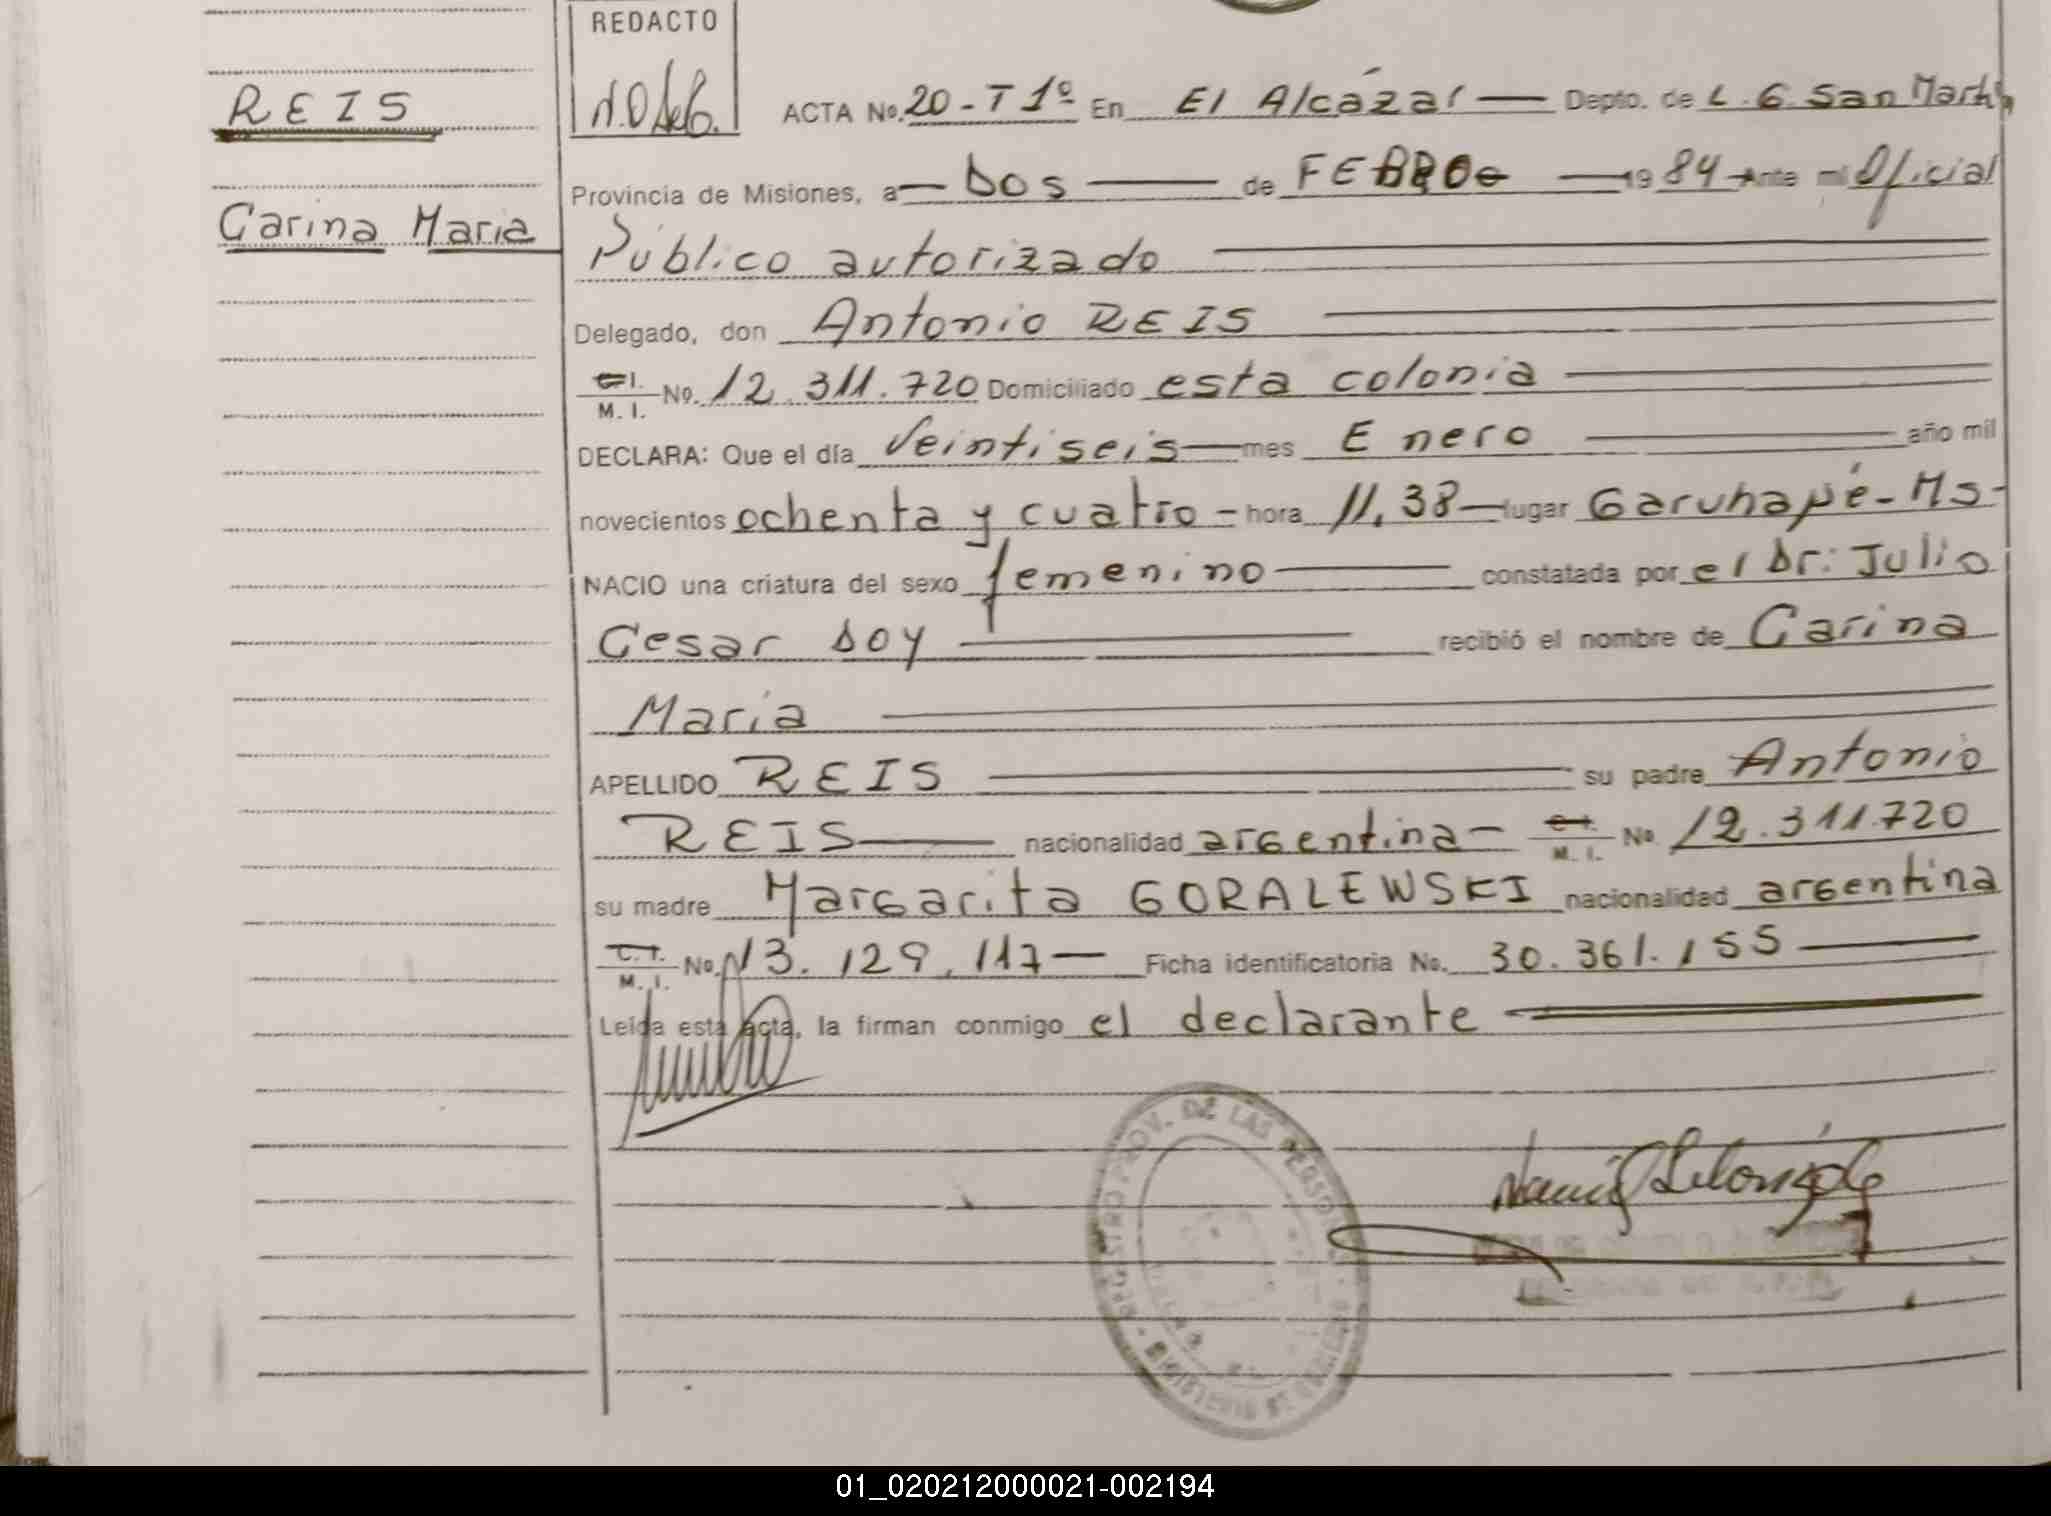 REDACTO
REIS
ACTA No. 20 - T 1º En El Alcázar Depto. de L. G. San Martín
Provincia de Misiones, a Dos de FEBRO 1984 Ante mi Oficial
Carina Maria
Público autorizado
Delegado, don Antonio REIS
C.I. M. I. No. 12.311.720 Domiciliado esta colonia
DECLARA: Que el día Veintiseis mes Enero año mil
novecientos ochenta y cuatro - hora 11,38 lugar Garuhapé - Ms -
NACIO una criatura del sexo femenino constatada por el Dr: Julio
Cesar Doy recibió el nombre de Carina
Maria
APELLIDO REIS su padre Antonio
REIS nacionalidad argentina - C.I. M. I. No. 12.311.720
su madre Margarita GORALEWSKI nacionalidad argentina
C.I. M. I. No. 13.129.117 Ficha identificatoria No. 30.361.155
Leída esta acta, la firman conmigo el declarante
REGISTRO PROV. DE LAS PERSONAS - MINISTERIO DE GOBIERNO
01_020212000021-002194